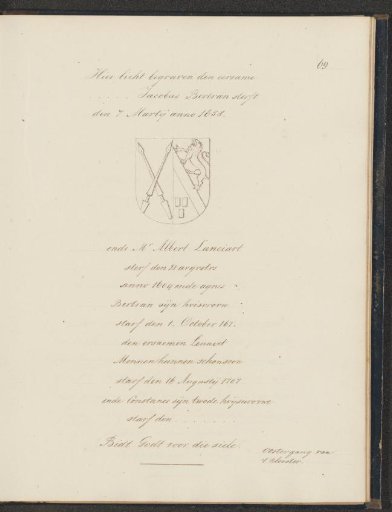 69
Hier licht begraven den eersame
. . . . . Jacobus Bertran sterft
den 7 Martij anno 1658.
ende Mr Albert Lanciart
sterf den 21 augustus
anno 1669 ende agnes
Bertran sijn huisvrow
starf den 1. October 167.
den eersamen Lennert
Monnen hunnen schonsoon
starf den 16 Augustij 1707
ende Constance sijn twede huysvrowe
starf den . . . . . . .
Bidt Godt voor die siele
Oostergang van
't klooster